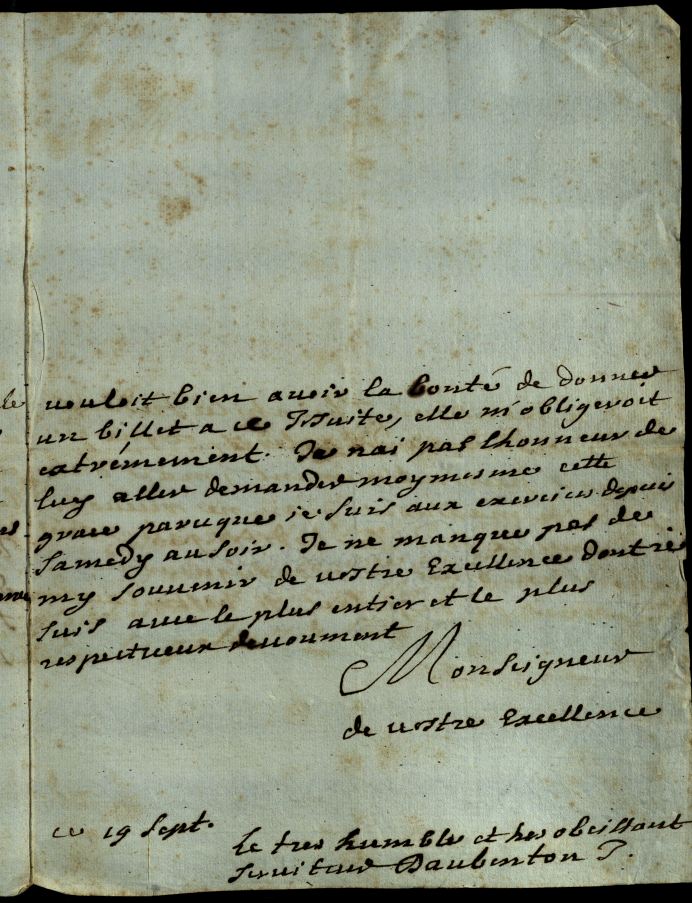 vouloit bien avoir la bonté de donner
un billet a ce Jesuite, elle m'obligeroit
extrémement. Je nai pas lhonneur de
luy aller demander moymesme cette
grace parceque je suis aux exercices depuis
samedy au soir. Je ne manque pas de
my souvenir de vostre Excellence dont je
suis avec le plus entier et le plus
respectueux devoument
Monseigneur
de vostre Excellence
ce 19 Sept.
le tres humble et tres obeissant
serviteur Daubenton J.